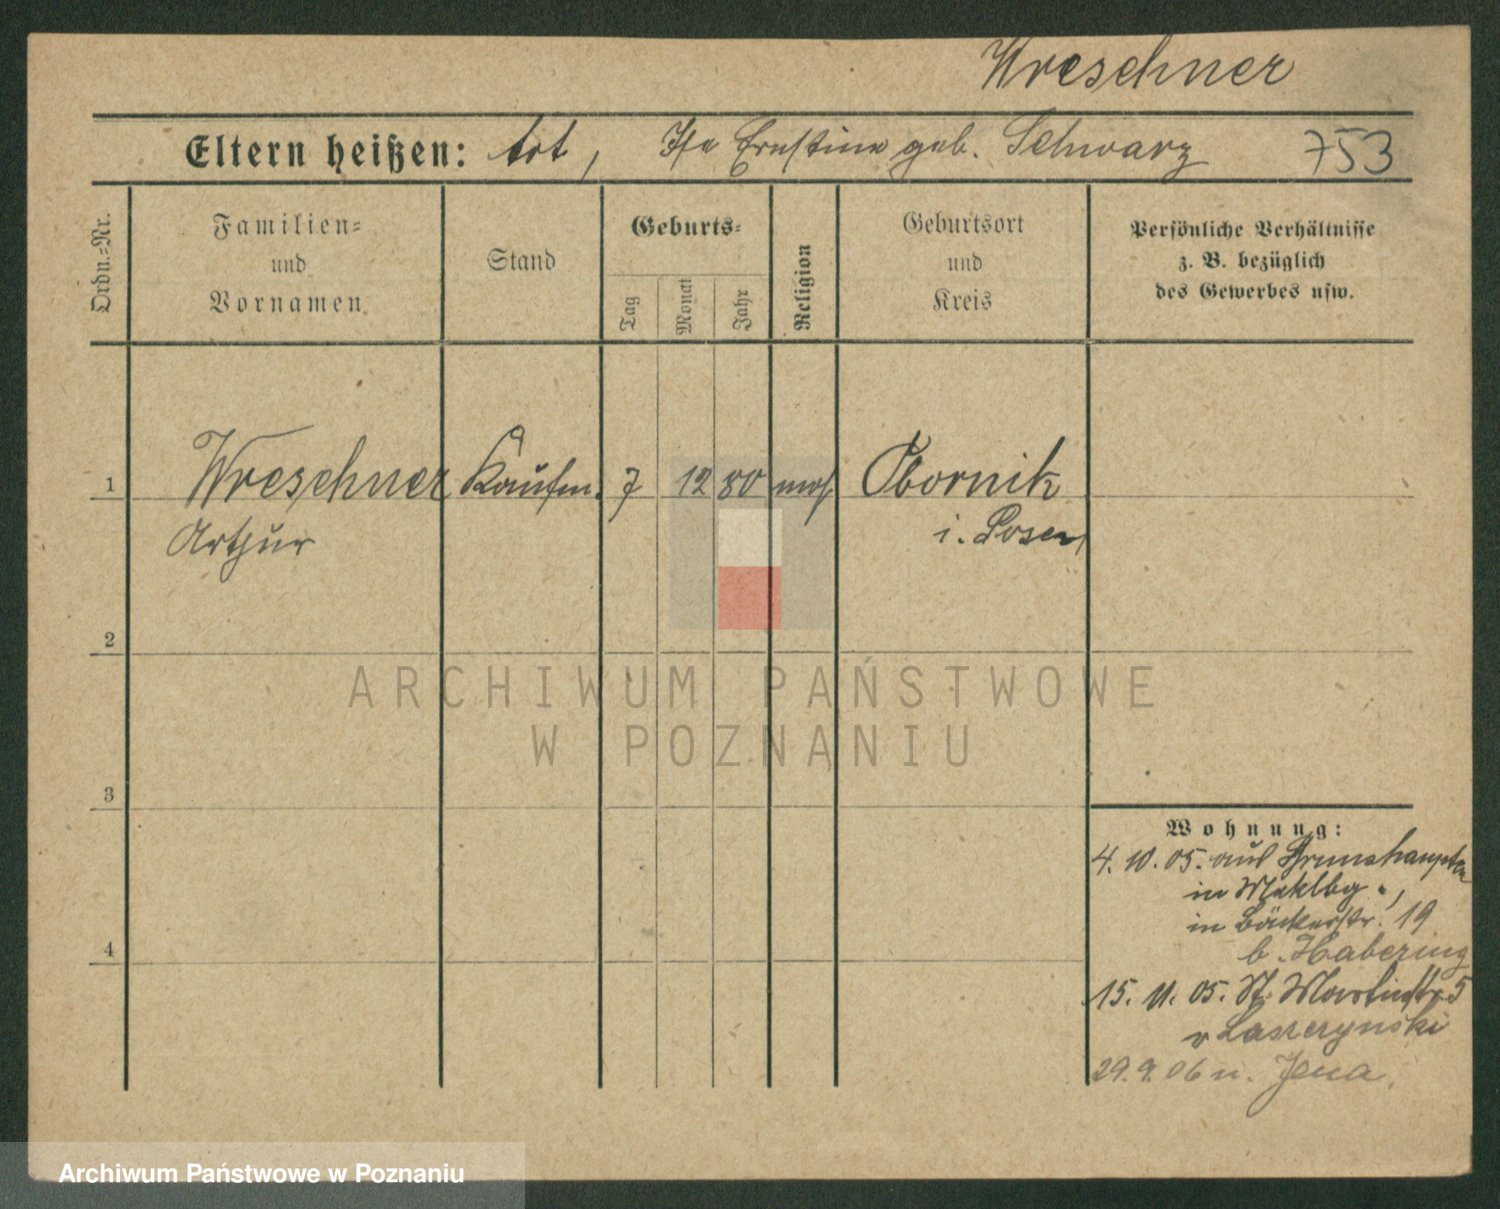 Wreschner
Eltern heißen: tot, Ernestine geb. Schwarz 753
Ordn.-Nr.
Familien-
und
Vornamen
Stand
Geburts-
Tag
Monat
Jahr
Religion
Geburtsort
und
Kreis
Persönliche Verhältnisse
z. B. bezüglich
des Gewerbes usw.
1 Wreschner Kaufm. 7 12 80 mos Obornik
Arthur i. Posen
2
ARCHIWUM PAŃSTWOWE
W POZNANIU
3
Wohnung:
4. 10. 05. aus Brunshaupten
in Meklbg.,
in Bäckerstr. 19
b. Habering
4
15. 11. 05. St. Martinstr. 5
v Laszczynski
29. 9. 06 n. Jena.
Archiwum Państwowe w Poznaniu